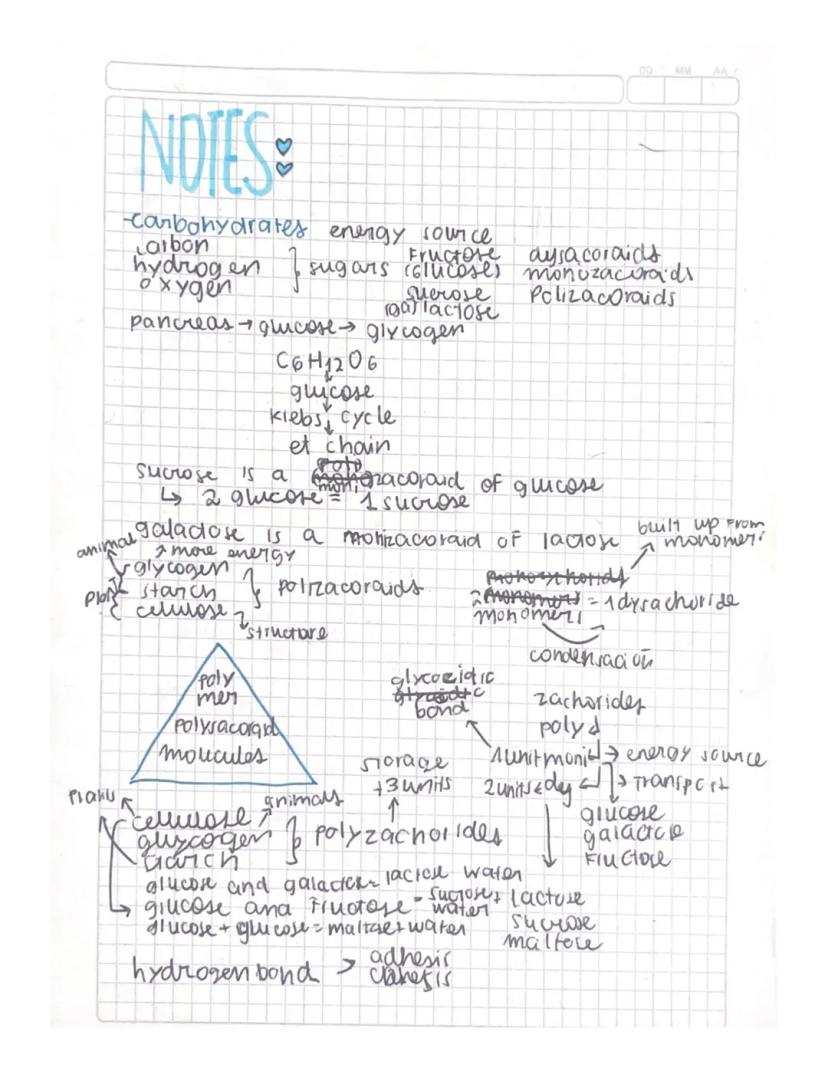 DD MM AA
NOTES:
-carbohydrates energy source
carbon
hydrogen
oxygen
sugars
Fructose
(Glucose)
sucrose
galactose
dysacoraids
monozacoraids
Polizacoraids
pancreas → glucose → glycogen
C6H12O6
glucose
Krebs cycle
et chain
sucrose is a moni zacoraid of glucose
↳ 2 glucose = 1 sucrose
galactose is a monizacoraid of lactose
built up from
monomeri
animal
↗ more energy
glycogen
starch
cellulose
plant
polizacoraids
structure
2 monomeri = 1 dysachoride
condensación
poly
mer
polysacoraid
moucules
glycozidic
bond
zachorides
poly
1 unit moni → energy source
2 units dy
→ transport
storage
+3 units
glucose
galactose
Fructose
plants
animals
cellulose
glycogen
starch
polyzachorides
glucose and galactose = lactose water
glucose and Fructose = sucrose + water
glucose + glucose = maltose + water
lactose
sucrose
maltose
hydrogen bond >
adhesis